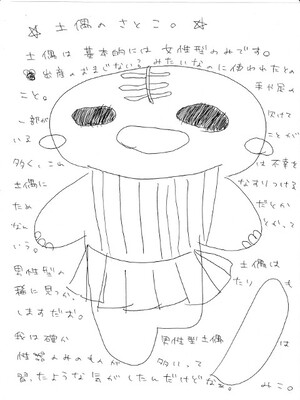 ☆ 土偶のさとこ。☆
土偶は基本的には女性型のみです。
出産のおまじないみたいなのに使われたとの
こと。 手や足の
一部が 欠けて
いる ことが
多く、これ は不幸を
土偶に なすりつける
ため だとか
なん とかって
いう。
男性型の 土偶は
稀に見つかっ たりも
しますだお。
我は確か 男性型土偶 は
性器のみのものが 多いって
習ったような気がしたんだけどなぁ。 みこ。